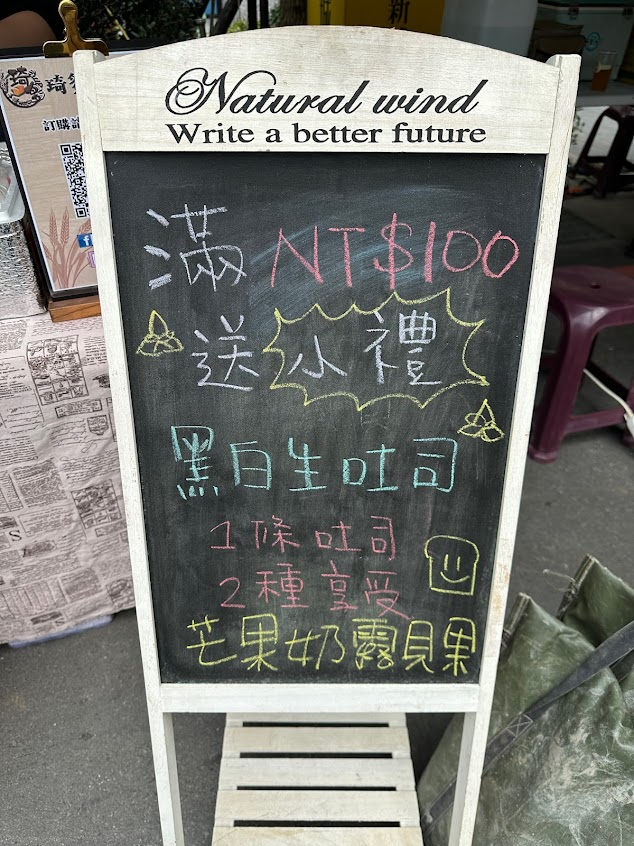 新
琦
訂購
Natural wind
Write a better future
滿 NT$100
送 小禮
黑白生吐司
1條吐司
2種享受
芒果奶露貝果